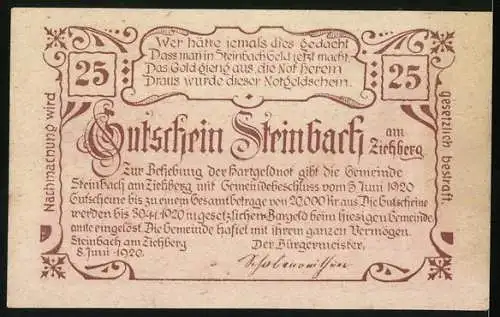 Wer hätte jemals dies gedacht
Dass man in Steinbach Geld jetzt macht
Das Gold gieng aus, die Not herein
Draus wurde dieser Notgeldschein.
25
25
Nachmachung wird
gesetzlich bestraft.
Gutschein Steinbach am
Ziehberg
Zur Behebung der Hartgeldnot gibt die Gemeinde
Steinbach am Ziehberg mit Gemeindebeschluss vom 5 Juni 1920
Gutscheine bis zu einem Gesamtbetrage von 20.000 Kr aus. Die Gutscheine
werden bis 1920 in gesetzlichem Bargeld beim hiesigen Gemeinde-
amte eingelöst. Die Gemeinde haftet mit ihrem ganzen Vermögen.
Steinbach am Ziehberg Der Bürgermeister.
8 Juni 1920.